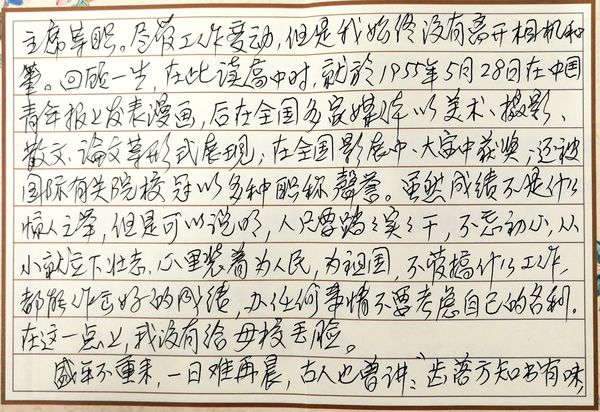 主席等职。尽管工作变动，但是我始终没有离开相机和
笔。回顾一生，在此读高中时，就於1955年5月28日在中国
青年报上发表漫画，后在全国多家媒体以美术、摄影、
散文、论文等形式展现，在全国影展中、大赛中获奖，还被
国际有关院校冠以多种职称聲誉。虽然成绩不是什么
惊人之举，但是可以说明，人只要踏踏实实干，不忘初心，从
小就立下壮志，心里装着为人民，为祖国，不管搞什么工作，
都能作出好的成绩，办任何事情不要考虑自己的名利。
在这一点上，我没有给母校丢脸。
盛年不重来，一日难再晨，古人也曾讲："齿落方知书有味，